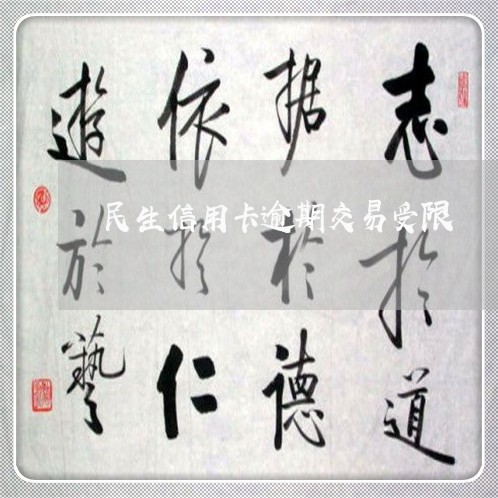 志於道
据於德
依於仁
遊於藝
民生信用卡逾期交易受限